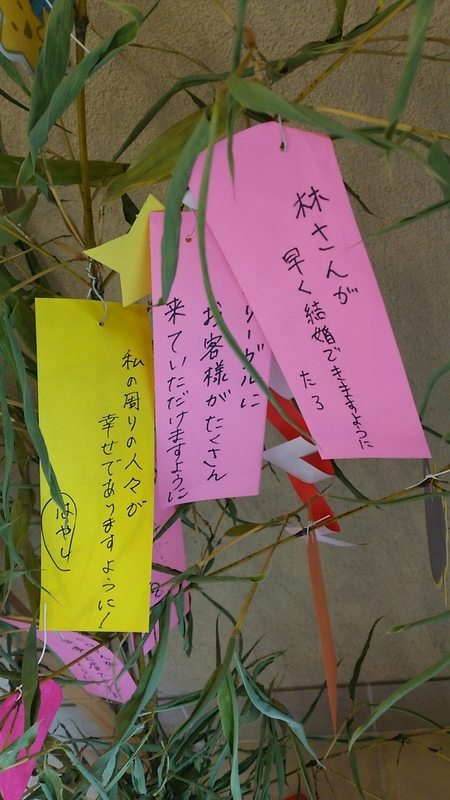 林さんが
早く結婚できますように
たろ
リーグルに
お客様がたくさん
来ていただけますように
私の周りの人々が
幸せでありますように!
はやし